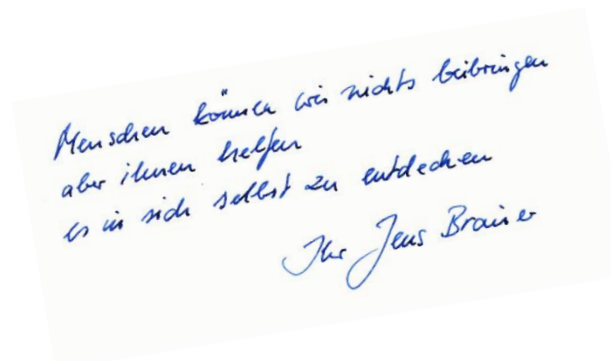 Menschen können wir nichts beibringen
aber ihnen helfen
es in sich selbst zu entdecken
Ihr Jens Brainer